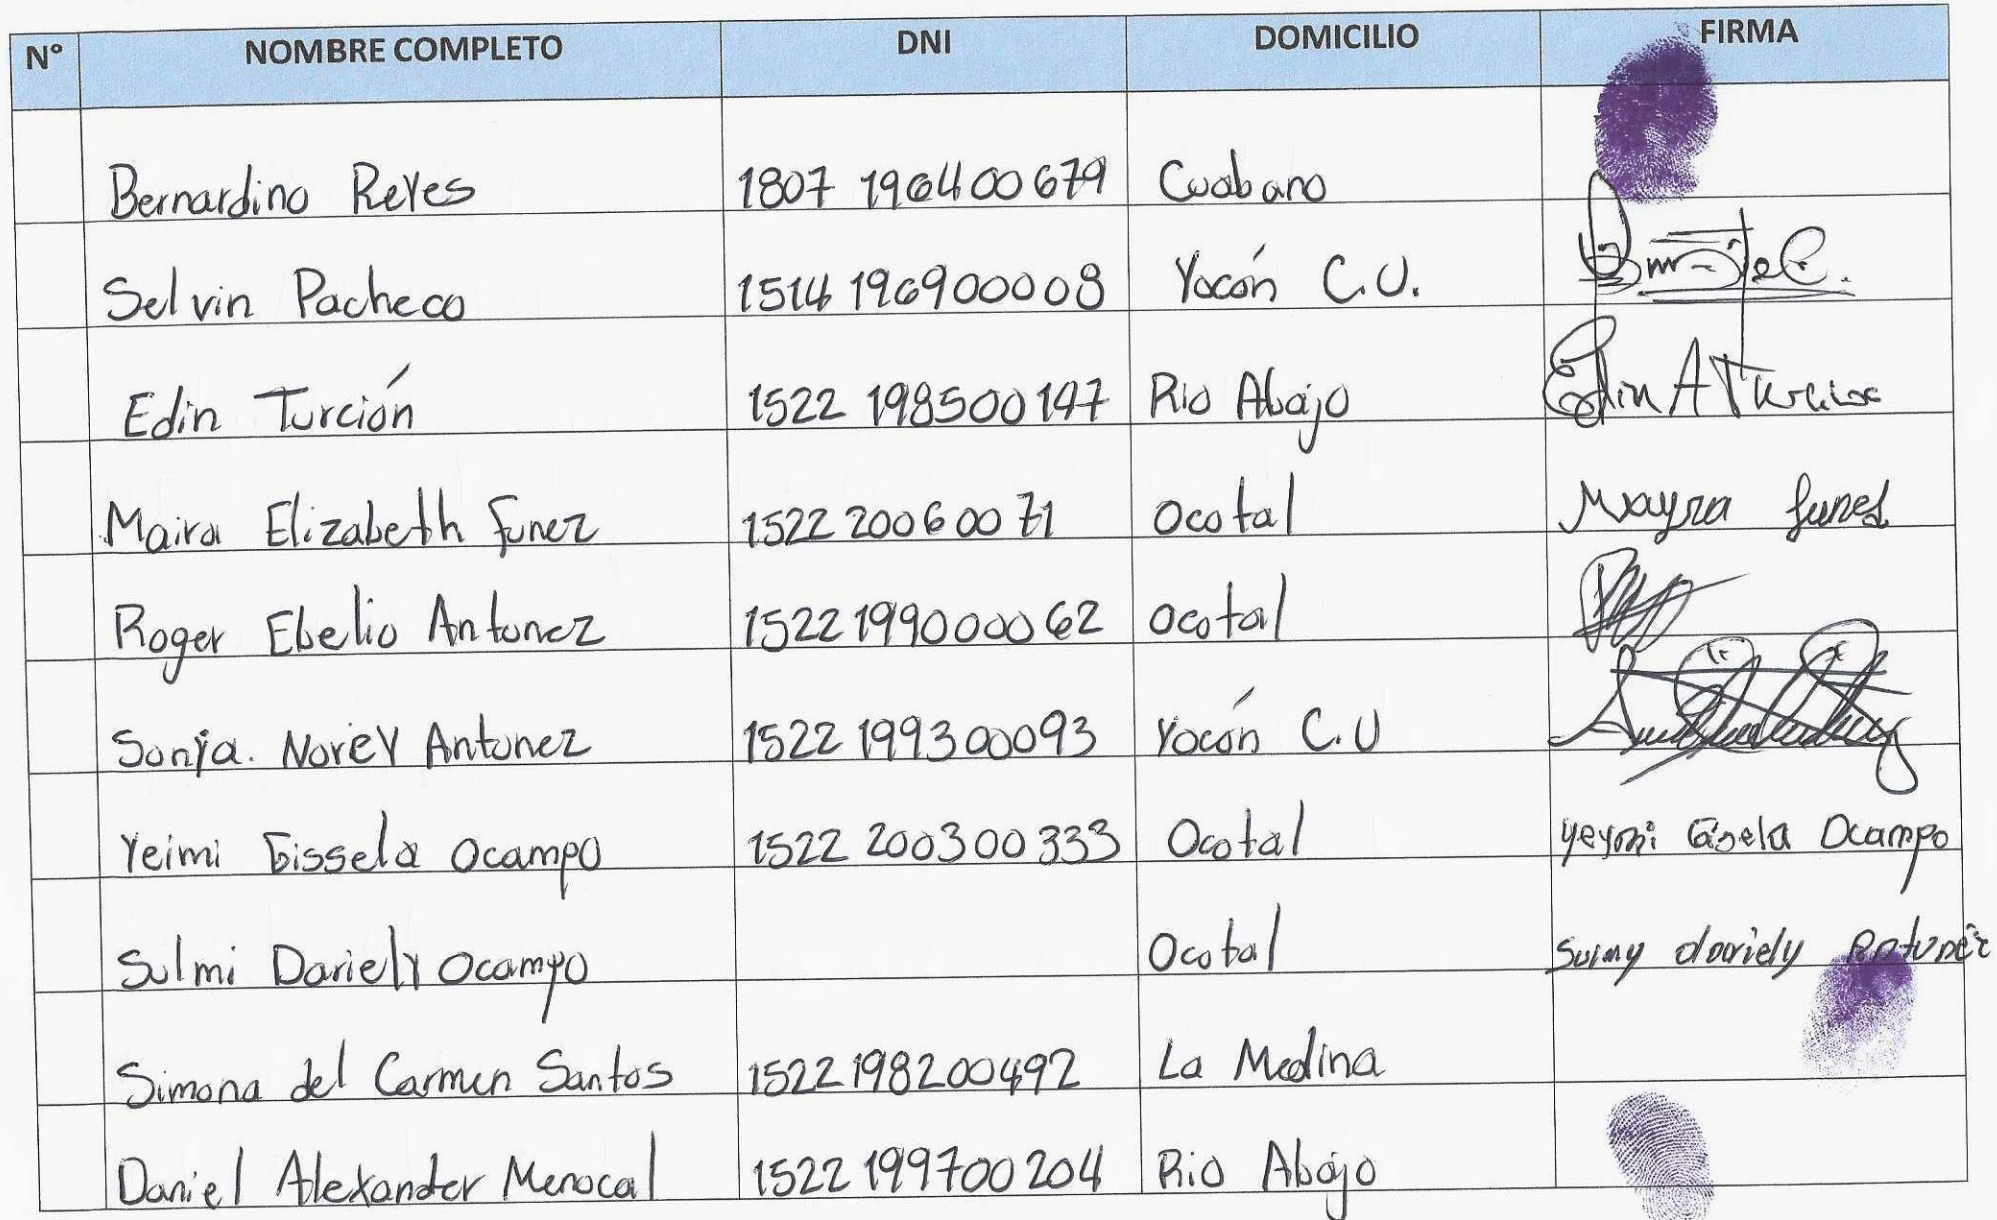 N° NOMBRE COMPLETO DNI DOMICILIO FIRMA
Bernardino Reyes 1807 196400679 Cuabano
Selvin Pacheco 1514 196900008 Yocón C.U.
Edin Turción 1522 198500147 Rio Abajo Edin A Turcios
Maira Elizabeth Funez 1522 20060071 Ocotal Mayra funes
Roger Ebelio Antunez 1522 199000062 Ocotal
Sonja. Norey Antunez 1522 199300093 Yocón C.U
Yeimi Gissela Ocampo 1522 200300333 Ocotal yeymi Gisela Ocampo
Sulmi Dariely Ocampo Ocotal Sulmy dariely Antunez
Simona del Carmen Santos 1522 198200492 La Medina
Daniel Alexander Menocal 1522 199700204 Rio Abajo